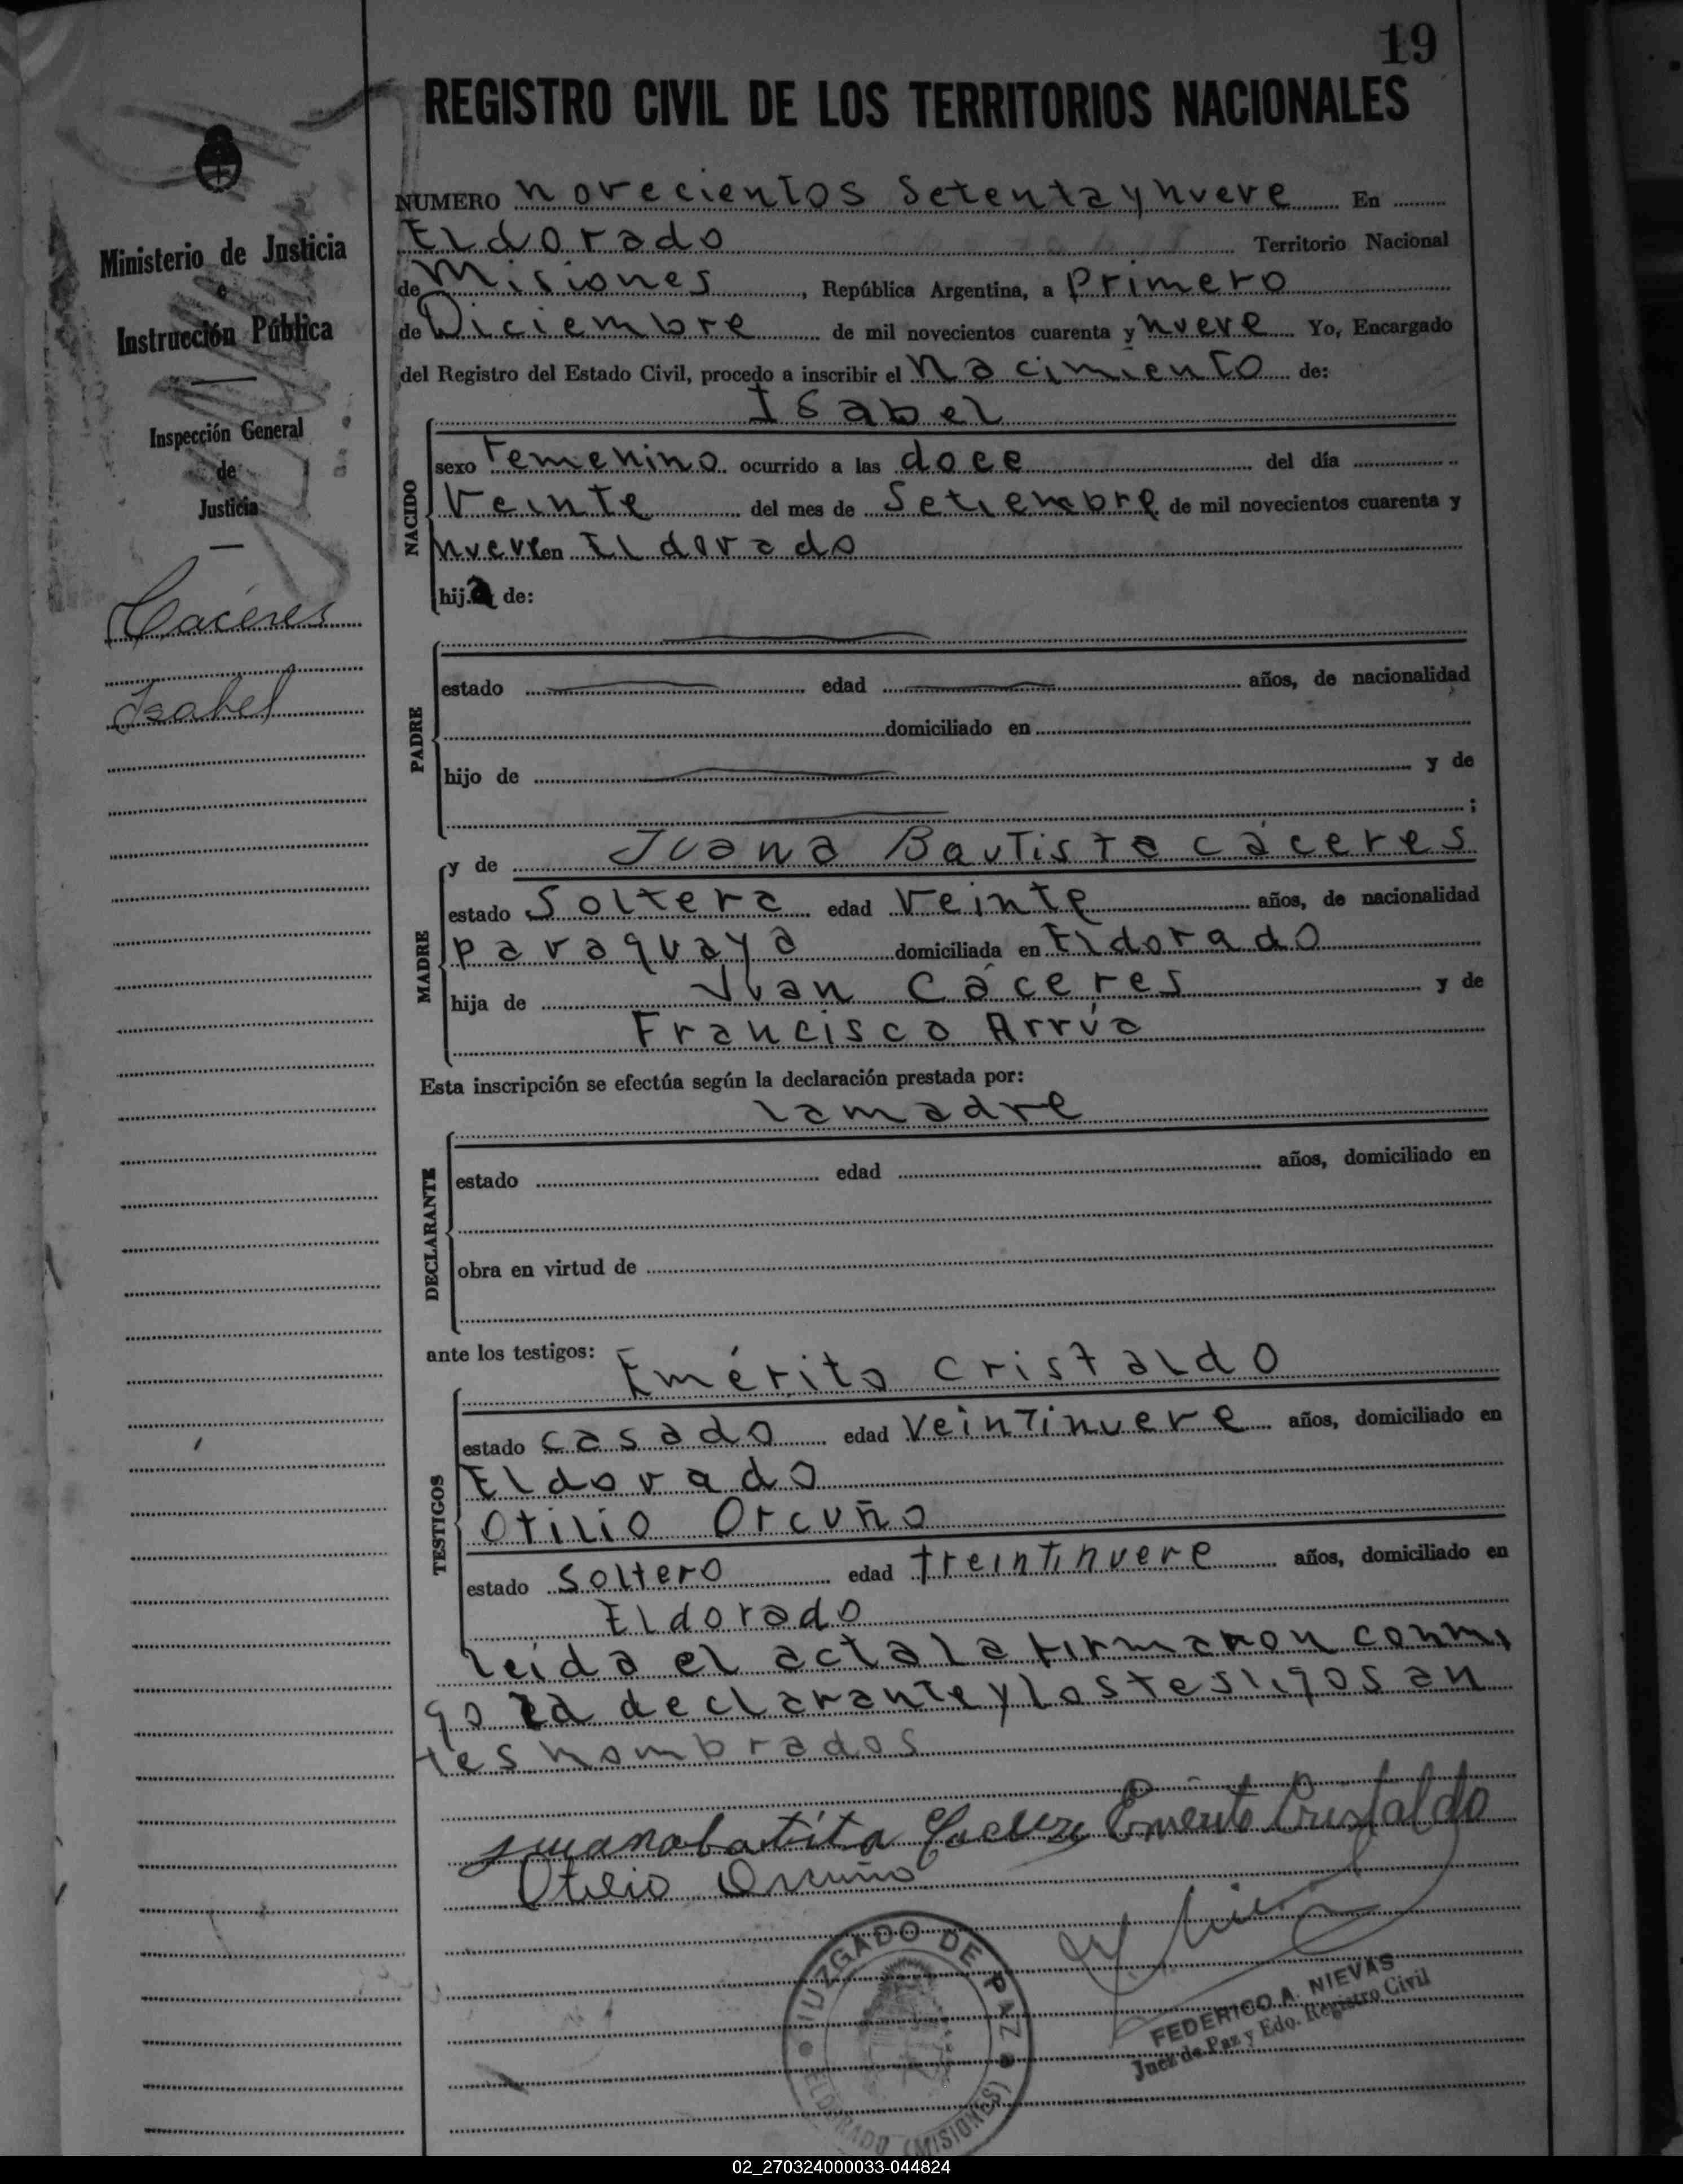 19
REGISTRO CIVIL DE LOS TERRITORIOS NACIONALES
Ministerio de Justicia
e
Instrucción Pública
Inspección General
de
Justicia
Cáceres
Isabel
NUMERO novecientos Setenta y nueve En
Eldorado Territorio Nacional
de Misiones, República Argentina, a Primero
de Diciembre de mil novecientos cuarenta y nueve Yo, Encargado
del Registro del Estado Civil, procedo a inscribir el Nacimiento de:
Isabel
NACIDO
sexo Femenino ocurrido a las doce del día
Veinte del mes de Setiembre de mil novecientos cuarenta y
nueve en Eldorado
hija de:
PADRE
estado edad años, de nacionalidad
domiciliado en
hijo de y de
;
MADRE
y de Juana Bautista cáceres
estado Soltera edad Veinte años, de nacionalidad
paraguaya domiciliada en Eldorado
hija de Juan Cáceres y de
Francisca Arrúa
Esta inscripción se efectúa según la declaración prestada por:
la madre
DECLARANTE
estado edad años, domiciliado en
obra en virtud de
ante los testigos:
TESTIGOS
Emérito cristaldo
estado casado edad Veintinueve años, domiciliado en
Eldorado
Otilio Orcuño
estado Soltero edad treintinueve años, domiciliado en
Eldorado
leída el acta la firmaron conmi
go la declarante y los testigos an
tes nombrados
juanabatita Emerito Cristaldo
Otilio Orcuño
JUZGADO DE PAZ
ELDORADO (MISIONES)
FEDERICO A. NIEVAS
Juez de Paz y Edo. Registro Civil
02_270324000033-044824